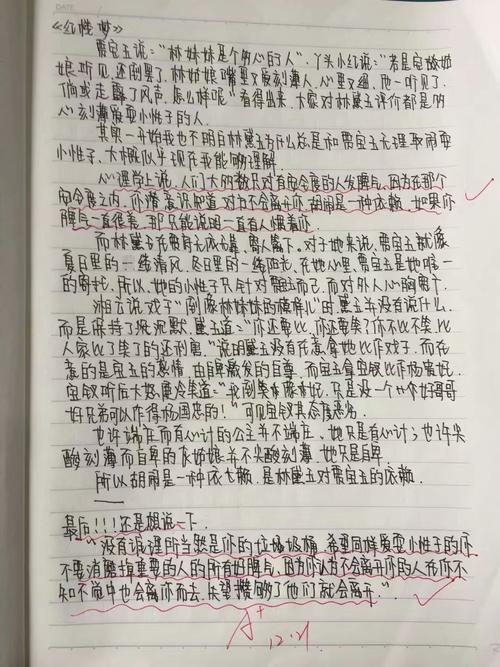 DATE
《红楼梦》
贾宝玉说："林妹妹是个多心的人"。丫头小红说："若是宝姑
娘听见,还倒罢了。林姑娘嘴里又爱刻薄人,心里又细,他一听见了,
倘或走露了风声,怎么样呢"看得出来,大家对林黛玉评价都是多
心刻薄爱耍小性子的人。
其实一开始我也不明白林黛玉为什么总是和贾宝玉无理取闹耍
小性子,大概似乎现在我能够理解。
心理学上说,人们大多数只对有安全度的人发脾气,因为在那个
安全度之内,你潜意识知道对方不会离开你,胡闹是一种依赖,如果你
脾气一直很差,那只能说明一直有人惯着你
而林黛玉在贾府无依无靠,寄人篱下。对于她来说,贾宝玉就像
夏日里的一缕清风,冬日里的一缕阳光,在她心里,贾宝玉是她唯一
的寄托,所以,她的小性子只针对宝玉而已,而对外人心胸宽广
湘云说戏子"倒像林妹妹的模样儿"时黛玉并没有说什么,
而是保持了沉默,黛玉道:"你还要比,你还要笑?你不比不笑,比
人家比了笑了的还利害。"说明黛玉没有在意拿她比作戏子,而在
意的是宝玉的表情,由自卑激发的自尊,而宝玉拿宝钗比作杨贵妃,
宝钗听后大怒,冷笑道:"我倒像杨妃,只是没一个好哥哥
好兄弟可以作得杨国忠的!"可见宝钗其态度恶劣
也许端庄而有心计的公主并不端庄,她只是有心计;也许尖
酸刻薄而自卑的灰姑娘并不尖酸刻薄,她只是自卑
所以胡闹是一种依赖,是林黛玉对贾宝玉的依赖
最后!!!还是想说一下
"没有谁理所当然是你的垃圾桶,希望同样爱耍小性子的你
不要消磨掉重要的人的所有好脾气,因为你认为不会离开你的人在你不
知不觉中也会离你而去,失望攒够了他们就会离开"
A+
12.21